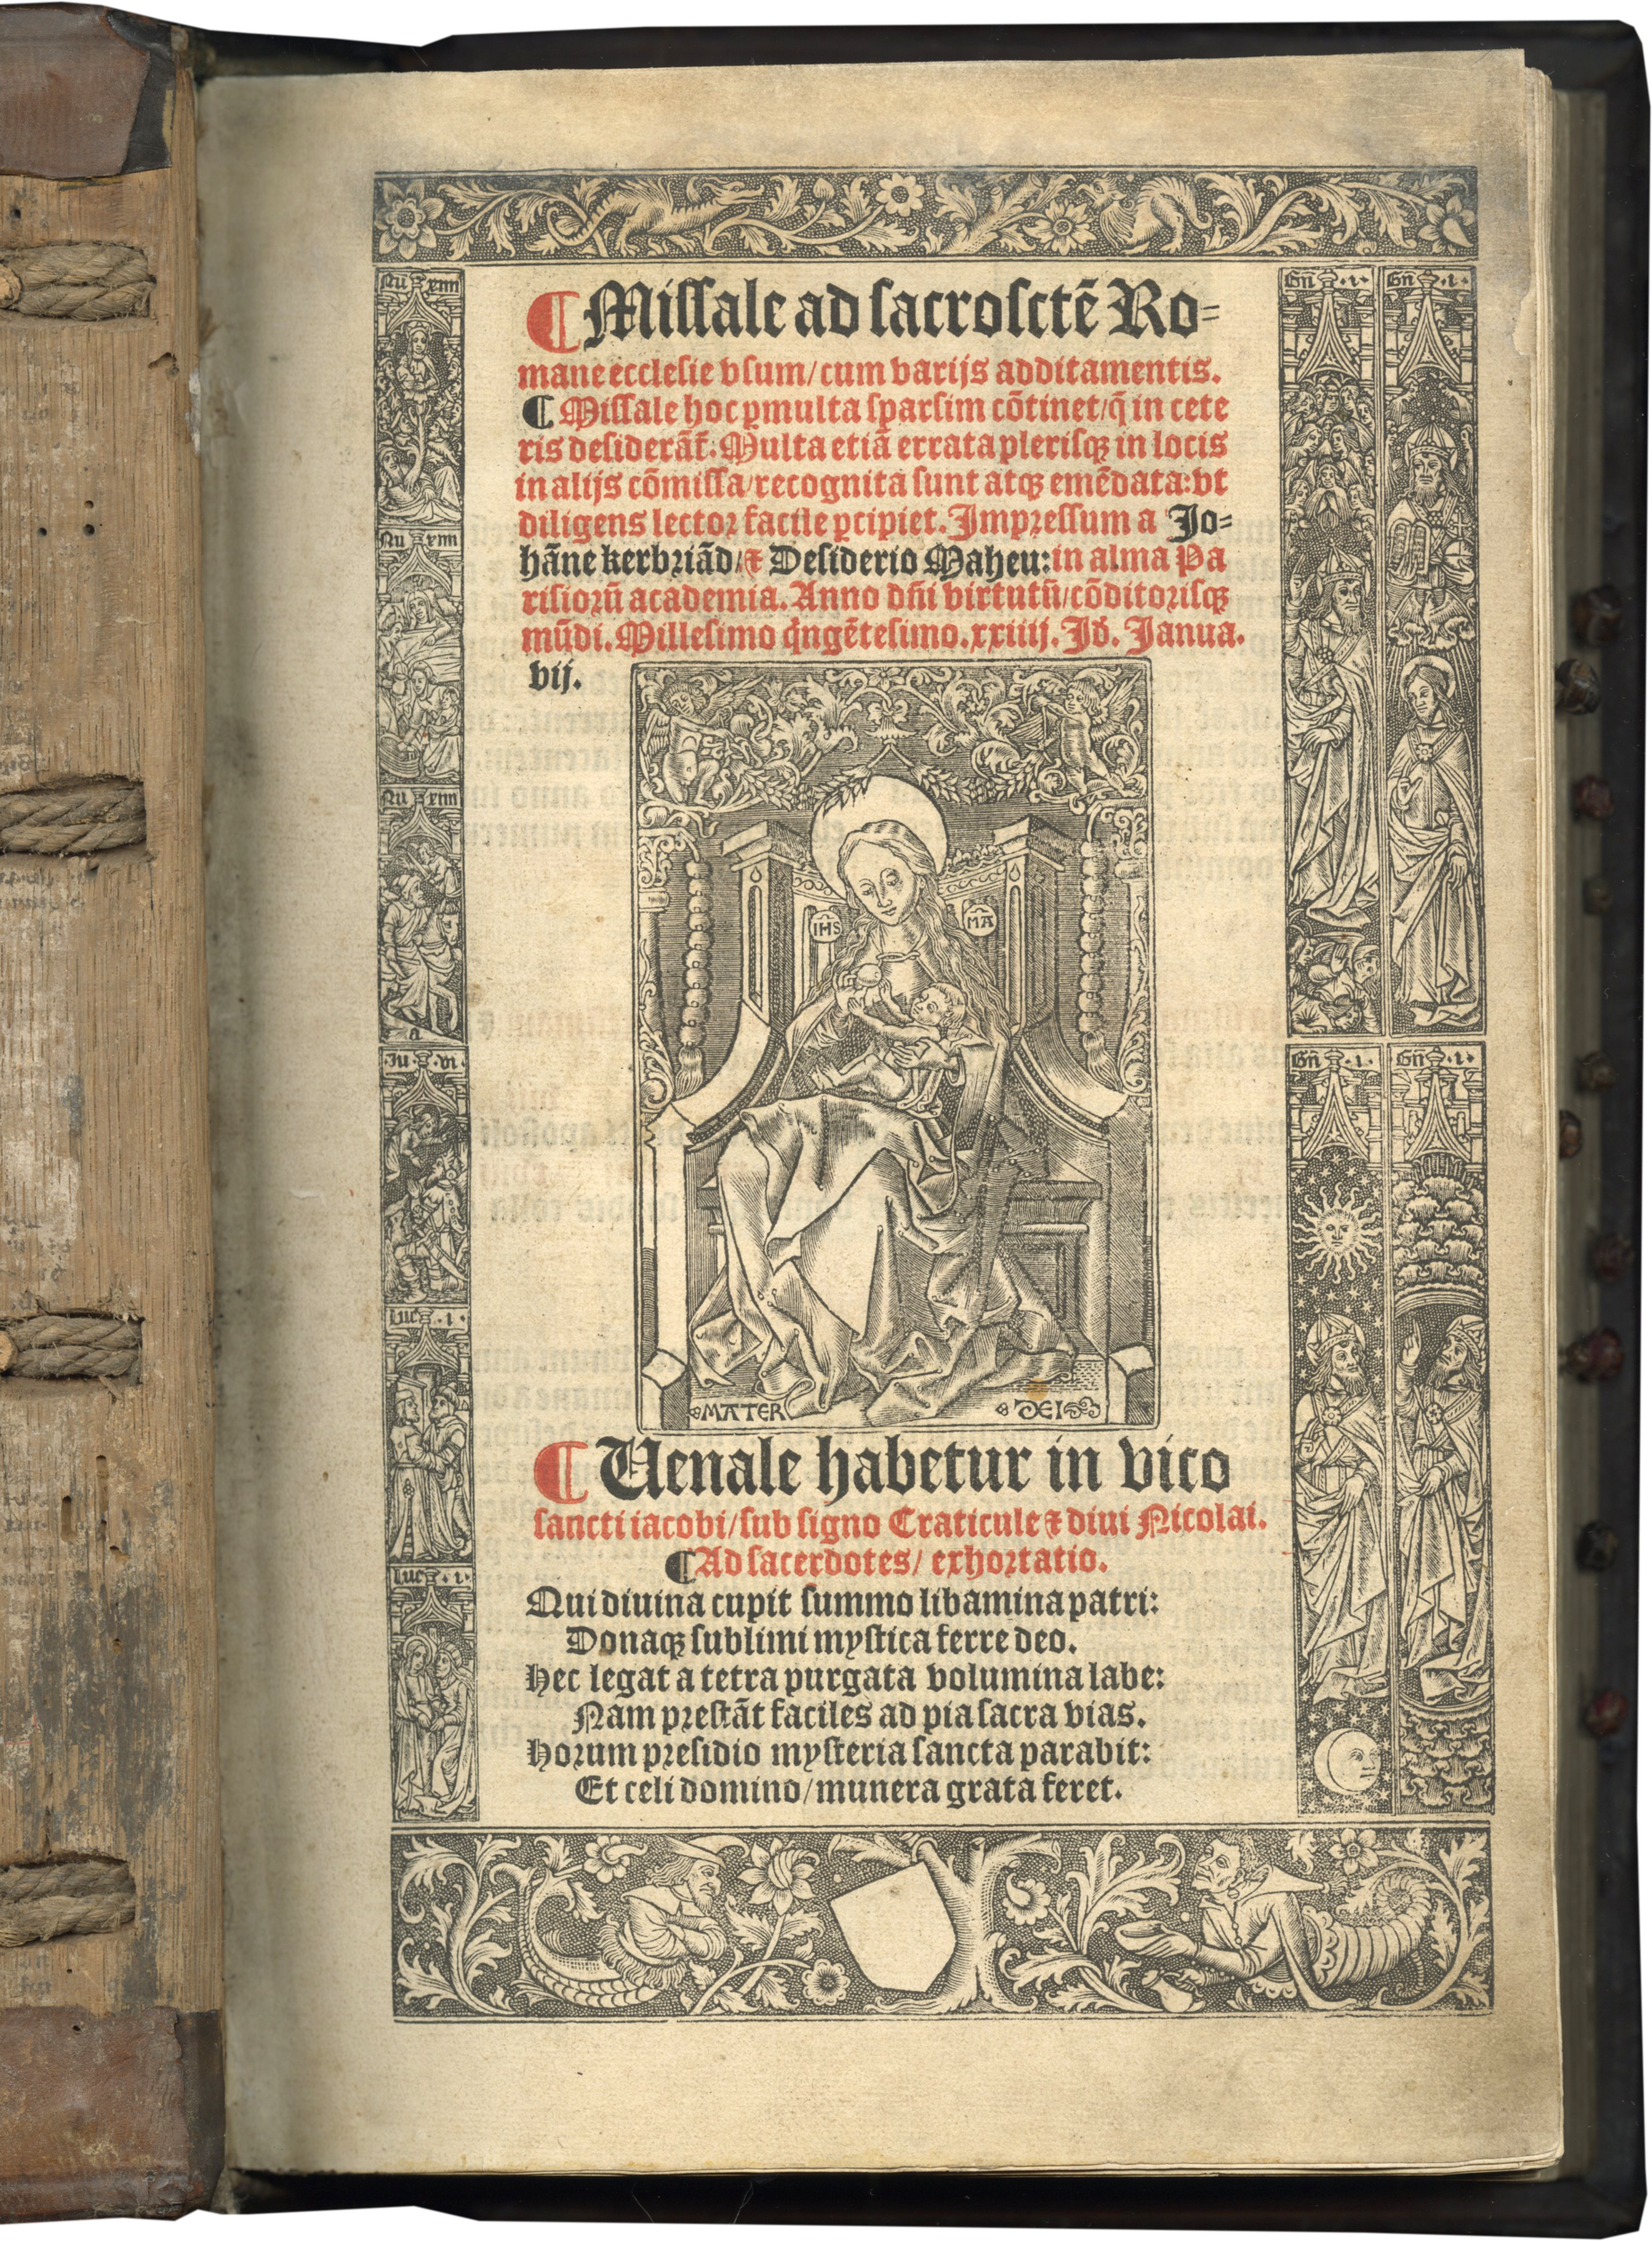 ¶ Missale ad sacrosctē Ro=
mane ecclesie vsum/cum varijs additamentis.
¶ Missale hoc ꝑmulta sparsim cōtinet/q̄ in cete
ris desiderāt̄: Multa etiā errata plerisqꝫ in locis
in alijs cōmissa/recognita sunt atqꝫ emēdata: vt
diligens lector facile ꝑcipiet. Impressum a Jo=
hāne kerbriād/⁊ Desiderio Maheu: in alma Pa
risiorū academia. Anno dn̄i virtutū/cōditorisqꝫ
mūdi. Millesimo q̇ngētesimo.xxiiij. Jd̄. Janua.
vij.
IHS
MA
MATER DEI
¶ Uenale habetur in vico
sancti iacobi/sub signo Craticule ⁊ diui Nicolai.
¶ Ad sacerdotes/ exhortatio.
Qui diuina cupit summo libamina patri:
Donaqꝫ sublimi mystica ferre deo.
Hec legat a tetra purgata volumina labe:
Nam prestāt faciles ad pia sacra vias.
Horum presidio mysteria sancta parabit:
Et celi domino/munera grata feret.
Nu xvii
Nu xvii
Nu xvii
a
Ju vi.
Luc .i.
Luc .i.
Gn̄ .i.
Gn̄ .i.
Gn̄ .i.
Gn̄ .i.